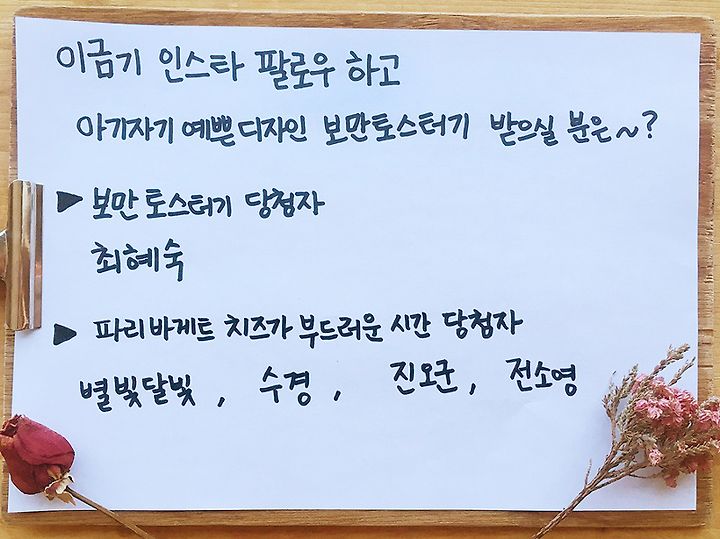 이금기 인스타 팔로우 하고
아기자기 예쁜 디자인 보만토스터기 받으실 분은~?
▶ 보만 토스터기 당첨자
최혜숙
▶ 파리바게트 치즈가 부드러운 시간 당첨자
별빛달빛, 수경, 진오군, 전소영